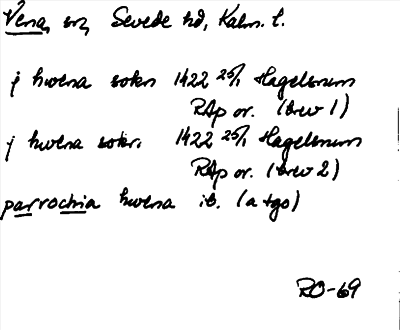 Vena, sn, Sevede hd, Kalm. l.
j hwena sokn 1422 25/1 Hagelsrum
RAp or. (brev 1)
j hwena sokn 1422 25/1 Hagelsrum
RAp or. (brev 2)
parrochia hwena ib. (a tgo)
RO-69